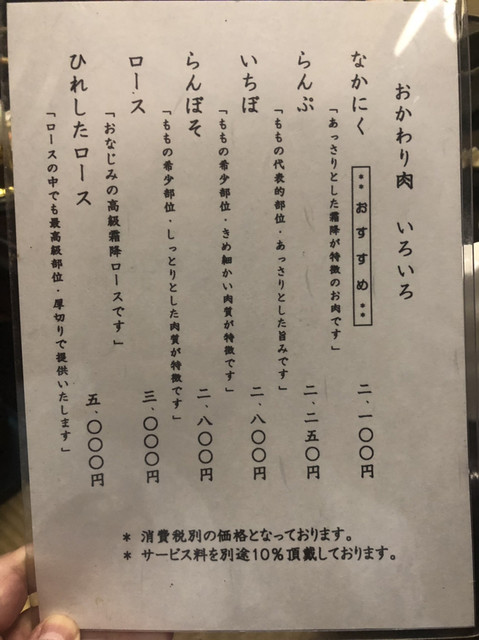 おかわり肉　いろいろ
なかにく　** おすすめ **　二、一〇〇円
「あっさりとした霜降が特徴のお肉です」
らんぷ　二、二五〇円
「ももの代表的部位・あっさりとした旨みです」
いちぼ　二、八〇〇円
「ももの希少部位・きめ細かい肉質が特徴です」
らんぼそ　二、八〇〇円
「ももの希少部位・しっとりとした肉質が特徴です」
ロース　三、〇〇〇円
「おなじみの高級霜降ロースです」
ひれしたロース　五、〇〇〇円
「ロースの中でも最高級部位・厚切りで提供いたします」
* 消費税別の価格となっております。
* サービス料を別途10%頂戴しております。